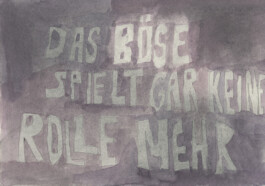 DAS BÖSE
SPIELT GAR KEINE
ROLLE MEHR